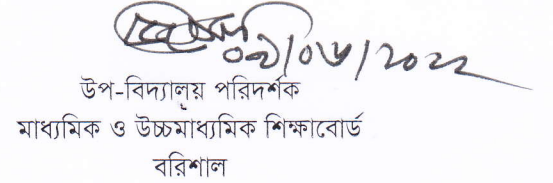 ০৯/০৬/২০২২
উপ-বিদ্যালয় পরিদর্শক
মাধ্যমিক ও উচ্চমাধ্যমিক শিক্ষাবোর্ড
বরিশাল